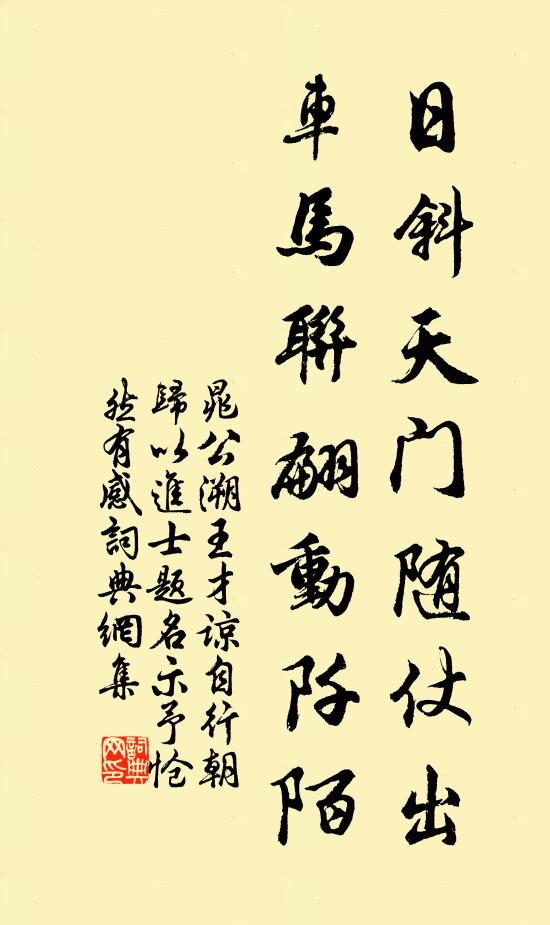 日斜天门随仗出
車馬聯翩動阡陌
晁公溯王才諒自行朝
歸以進士題名示予愴
然有感詞典網集
詞典网印